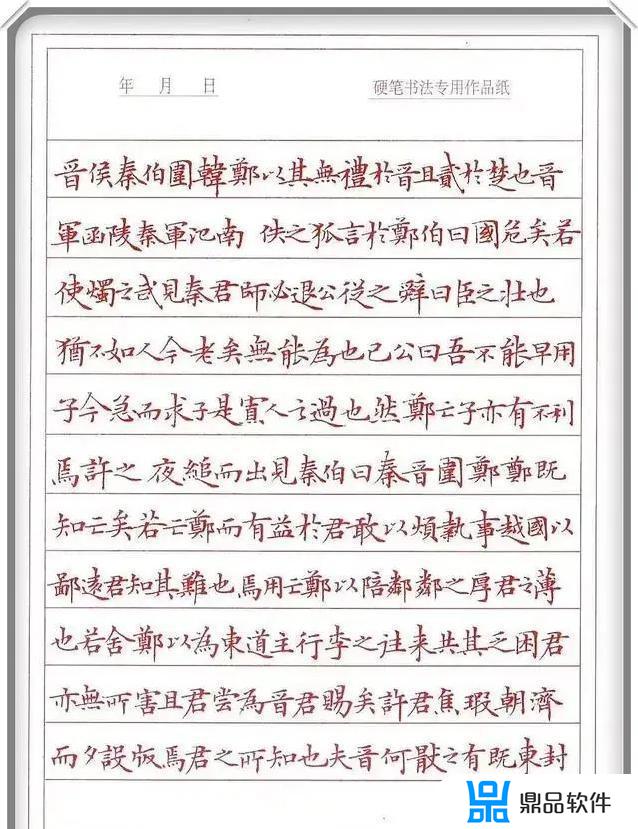 年 月 日
硬笔书法专用作品纸
晋侯秦伯圍韓鄭以其無禮於晋且貳於楚也晋
軍函陵秦軍氾南 佚之狐言於鄭伯曰國危矣若
使燭之武見秦君師必退公從之辭曰臣之壮也
猶不如人今老矣無能為也已公曰吾不能早用
子今急而求子是寡人之過也然鄭亡子亦有不利
焉許之 夜縋而出見秦伯曰秦晋圍鄭鄭既
知亡矣若亡鄭而有益於君敢以煩執事越國以
鄙遠君知其難也焉用亡鄭以陪鄰鄰之厚君之薄
也若舍鄭以為東道主行李之往来共其乏困君
亦無所害且君尝為晋君賜矣許君焦瑕朝濟
而夕設版焉君之所知也夫晋何猒之有既東封
鼎品软件